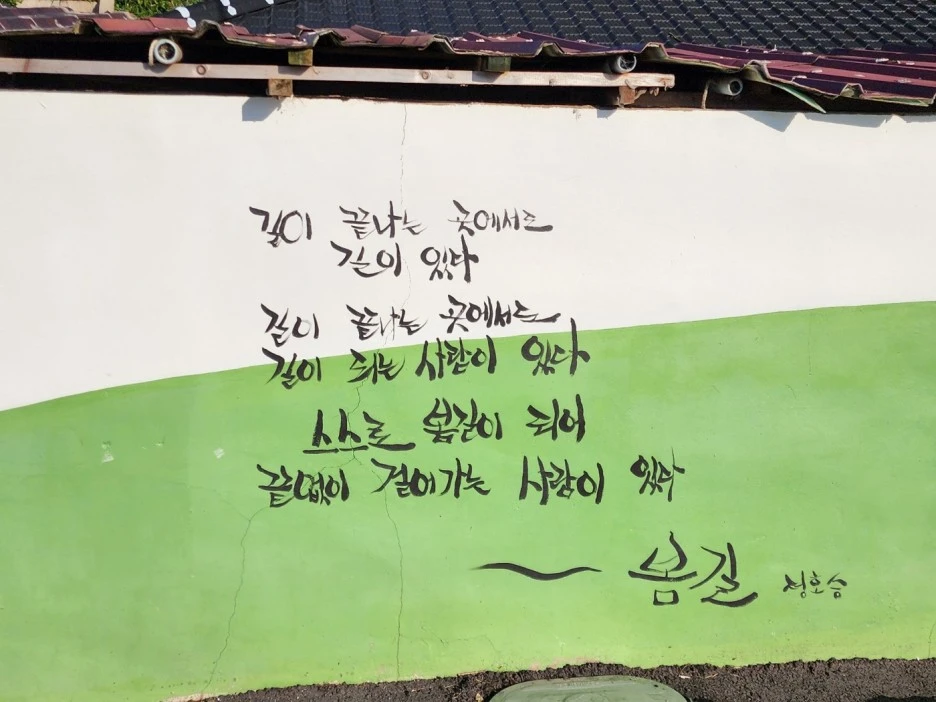 길이 끝나는 곳에서도
길이 있다
길이 끝나는 곳에서도
길이 되는 사람이 있다
스스로 봄길이 되어
끝없이 걸어가는 사람이 있다
봄길 정호승